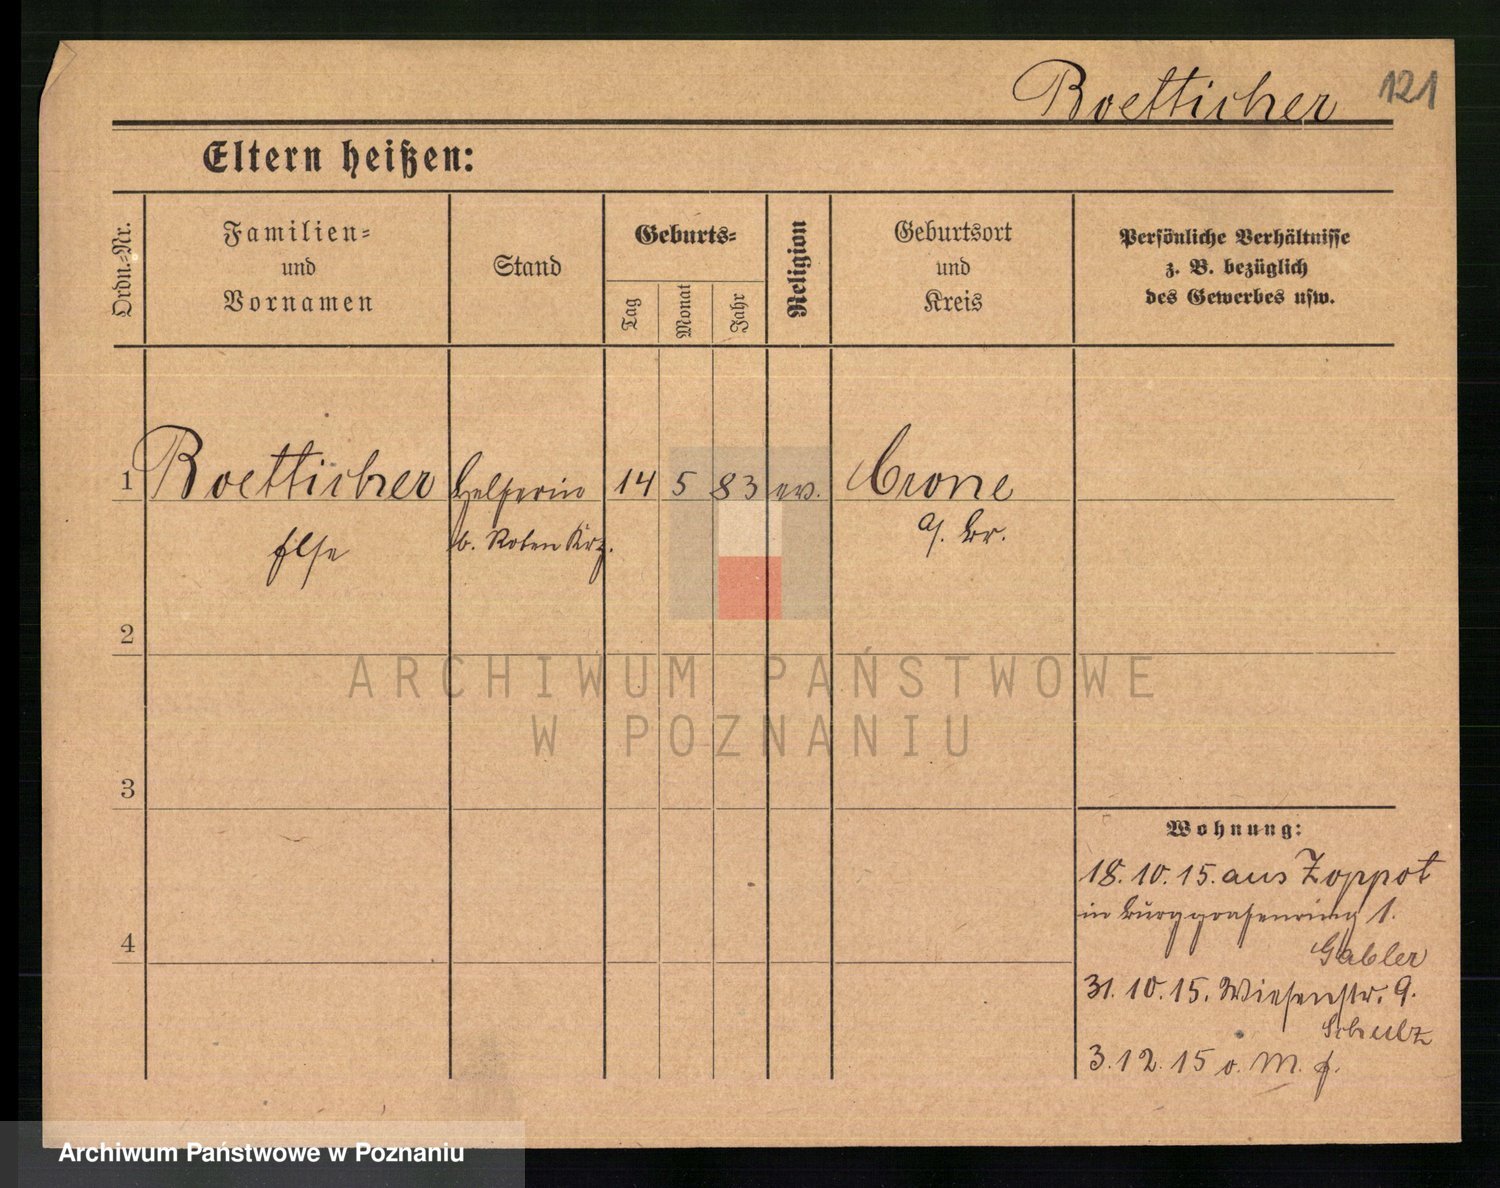 Boetticher 121
Eltern heißen:
Ordn.-Nr.
Familien-
und
Vornamen
Stand
Geburts-
Tag
Monat
Jahr
Religion
Geburtsort
und
Kreis
Persönliche Verhältnisse
z. B. bezüglich
des Gewerbes usw.
1 Boetticher Helferin 14 5 83 ev. Crone
Else b. Roten Krz. a/. Br.
2
ARCHIWUM PAŃSTWOWE
W POZNANIU
3
Wohnung:
18.10.15. aus Zoppot
in Burggrafenring 1.
Gabler
4
31.10.15. Wiesenstr. 9.
Schulz
3.12.15 o. M. f.
Archiwum Państwowe w Poznaniu